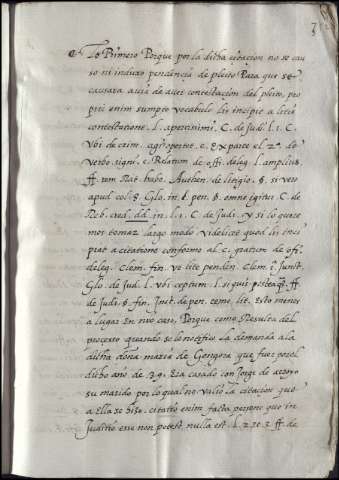 7
Lo Primero Porque por la dicha citacion no se cau
so ni induxo pendencia de pleito Para que se
causara auia de auer contestacion del pleito, pro
prie enim sumpto vocabulo lis incipit a litis
contestatione. l. aperissimi. C. de Judi. l. 1. C.
Vbi de crim. agi oportet. c. ex parte el 2º de
verbo. signi. c. Relatum de offi. deleg. l. amplius
ff. rem Rat. habe. Authen. de litigio. §. si vero
apud col. 8. Glo. in §. pen. §. omnem igitur. C. de
Reb. cred. dd. in. l. 1. C. de Judi. y si lo quere
mos tomar largo modo videlicet quod lis inci
piat a citatione conforme al c. gratum de offi.
deleg. Clem. fin. vt lite penden. Clem.
Glo. de Jud. l. vbi ceptum. l. si quis posteaq. ff.
de Judi. §. fin. Inst. de pen. teme. lit. Esto menos
a lugar En nro caso, Porque como Resulta del
processo quando se le notifico La demanda a la
dicha doña maria de Gongora que fue por el
dicho año de 39. Era casado con Jorge de
su marido por lo qual no valio La citacion que
a Ella se hizo. citatio enim facta persone que in
Juditio esse non potest, nulla est. l. 2 et 3. ff. de